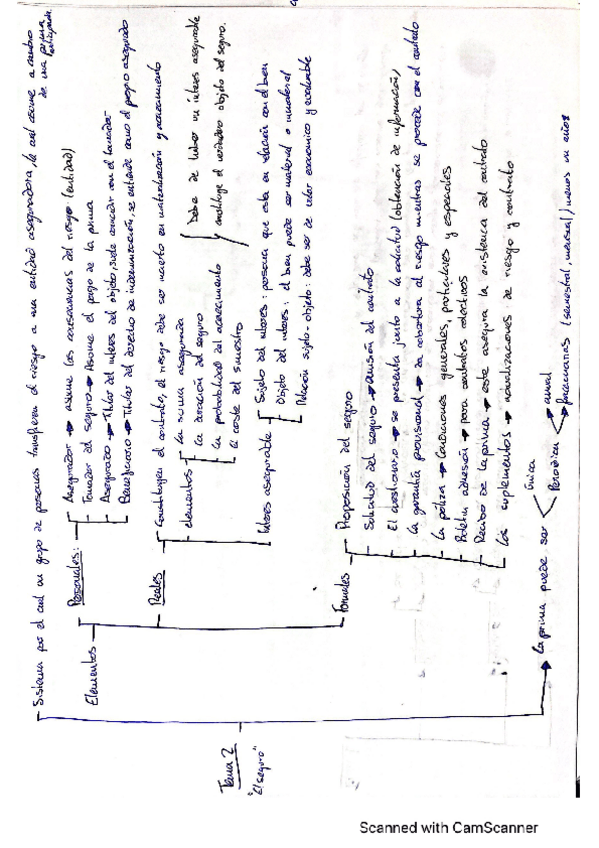 Tema 2
"El seguro"
Sistema por el cual un grupo de personas transfieren el riesgo a una entidad aseguradora, la cual asume a cambio
de una prima
Elementos
Personales:
Asegurador → asume las consecuencias del riesgo (entidad)
Tomador del seguro → Asume el pago de la prima
Asegurado → Titular del interes del objeto, suele coincidir con el tomador
Beneficiario → Titular del derecho de indemnización, se entiende como el propio asegurado
Reales
Constituyen el contrato, el riesgo debe ser incierto en materialización y acaecimiento
elementos
La suma asegurada
La duración del seguro
La probabilidad del acaecimiento
El coste del siniestro
Debe de haber un interes asegurable
y constituye el verdadero objeto del seguro.
Interes asegurable
Sujeto del interes: persona que esta en relación con el bien
Objeto del interes: el bien puede ser material o inmaterial
Relación sujeto-objeto: debe ser de valor economico y
Formales
Proposición del seguro
Solicitud del seguro → Omisión del contrato
El cuestionario → se presenta junto a la solicitud (obtención de información)
La garantía provisional → da cobertura al riesgo mientras se procede con el contrato
La póliza → Condiciones generales, particulares y especiales
Boletín adhesión → para contratos colectivos
Recibo de la prima → este asegura la existencia del contrato
Los suplementos → actualizaciones de riesgo y contrato
La prima puede ser
Única
Periódica
anual
fraccionarias (semestral, mensual) menos un año
Scanned with CamScanner